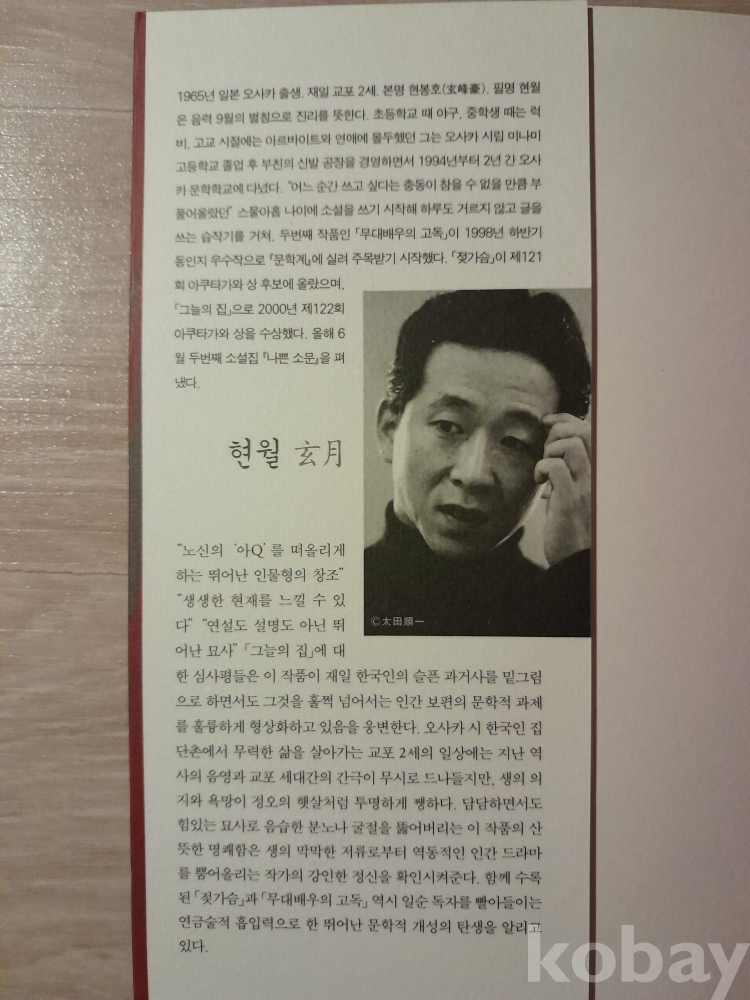 1965년 일본 오사카 출생. 재일 교포 2세. 본명 현봉호(玄峰豪). 필명 현월
은 음력 9월의 별칭으로 진리를 뜻한다. 초등학교 때 야구, 중학생 때는 럭
비, 고교 시절에는 아르바이트와 연애에 몰두했던 그는 오사카 시립 미나미
고등학교 졸업 후 부친의 신발 공장을 경영하면서 1994년부터 2년 간 오사
카 문학학교에 다녔다. "어느 순간 쓰고 싶다는 충동이 참을 수 없을 만큼 부
풀어올랐던" 스물아홉 나이에 소설을 쓰기 시작해 하루도 거르지 않고 글을
쓰는 습작기를 거쳐, 두번째 작품인 「무대배우의 고독」이 1998년 하반기
동인지 우수작으로 『문학계』에 실려 주목받기 시작했다. 「젖가슴」이 제121
회 아쿠타가와 상 후보에 올랐으며,
「그늘의 집」으로 2000년 제122회
아쿠타가와 상을 수상했다. 올해 6
월 두번째 소설집 『나쁜 소문』을 펴
냈다.
현월 玄月
ⓒ太田順一
"노신의 '아Q'를 떠올리게
하는 뛰어난 인물형의 창조"
"생생한 현재를 느낄 수 있
다" "연설도 설명도 아닌 뛰
어난 묘사" 「그늘의 집」에 대
한 심사평들은 이 작품이 재일 한국인의 슬픈 과거사를 밑그림
으로 하면서도 그것을 훌쩍 넘어서는 인간 보편의 문학적 과제
를 훌륭하게 형상화하고 있음을 웅변한다. 오사카 시 한국인 집
단촌에서 무력한 삶을 살아가는 교포 2세의 일상에는 지난 역
사의 음영과 교포 세대간의 간극이 무시로 드나들지만, 생의 의
지와 욕망이 정오의 햇살처럼 투명하게 쨍하다. 담담하면서도
힘있는 묘사로 음습한 분노나 굴절을 뚫어버리는 이 작품의 산
뜻한 명쾌함은 생의 막막한 저류로부터 역동적인 인간 드라마
를 뿜어올리는 작가의 강인한 정신을 확인시켜준다. 함께 수록
된 「젖가슴」과 「무대배우의 고독」 역시 일순 독자를 빨아들이는
연금술적 흡입력으로 한 뛰어난 문학적 개성의 탄생을 알리고
있다.
kobay